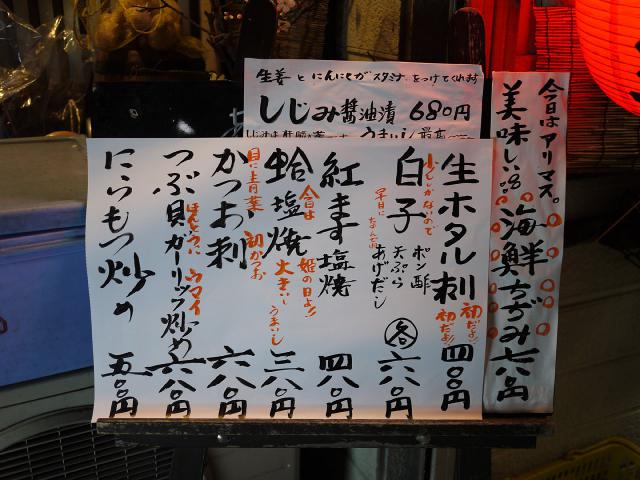 今日はアリマス。
美味しい 海鮮ちぢみ 七八〇円
生姜とにんにくがスタミナをつけてくれ
しじみ醤油漬 680円
うまいし 最高
生ホタル刺 初だよ! 初だよ!! 四〇〇円
少ししかないので
早目に
白子 ポン酢 天ぷら あげだし 各 六八〇円
紅ます塩焼 四八〇円
今日は 姫の日よ!!
蛤塩焼 大きいし うまいし 三八〇円
目に青葉 初かつお
かつお刺 六八〇円
ほんとうに ウマイ
つぶ貝ガーリック炒め 六八〇円
にらもつ炒め 五〇〇円